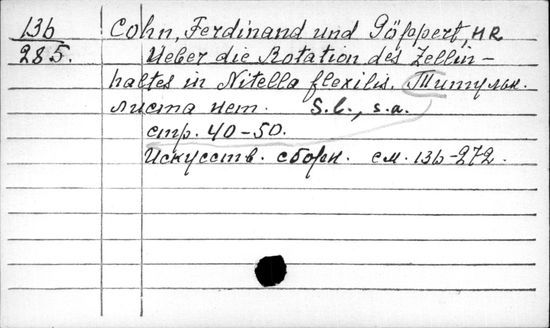 136 Cohn, Ferdinand und Göppert, HR
285. Ueber die Rotation des Zellin-
haltes in Nitella flexilis. Титульн.
листа нет. S.l., s.a.
стр. 40-50.
Искусств. сборн. см. 136-272.